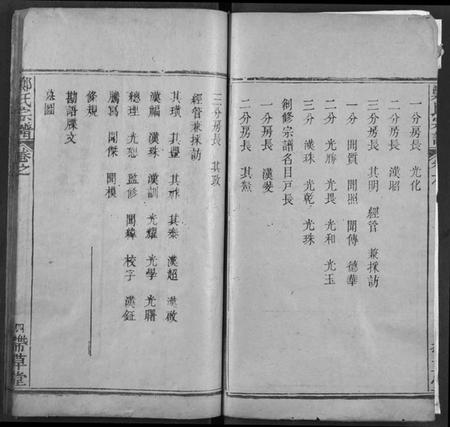 一分房長 光化
二分房長 漢昭
三分房長 其明 經管 兼採訪
一分 開質 開照 開傳 德華
二分 光勝 光畏 光和 光玉
三分 漢珠 光乾 光珠
創修宗譜名目戸長
一分房長 漢愛
二分房長 其黨
三分房長 其政
經管兼採訪
其璜 其豐 其祥 其泰 漢超 漢啟
漢編 漢珠 漢訓 光耀 光學 光曙
總理 光恕 監修 開緯 校字 漢鉦
謄寫 開傑 開模
條規
勘語牒文
墓圖
鄭氏宗譜 卷之一
四 帶草堂